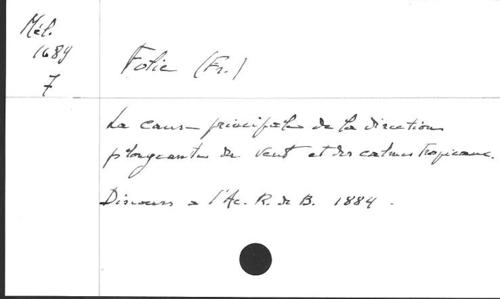 Mél.
1689
7
Folie (Fr.)
La cause principale de la direction
plongeante du vent et des calmes tropicaux.
Discours a l'Ac. R. de B. 1884.